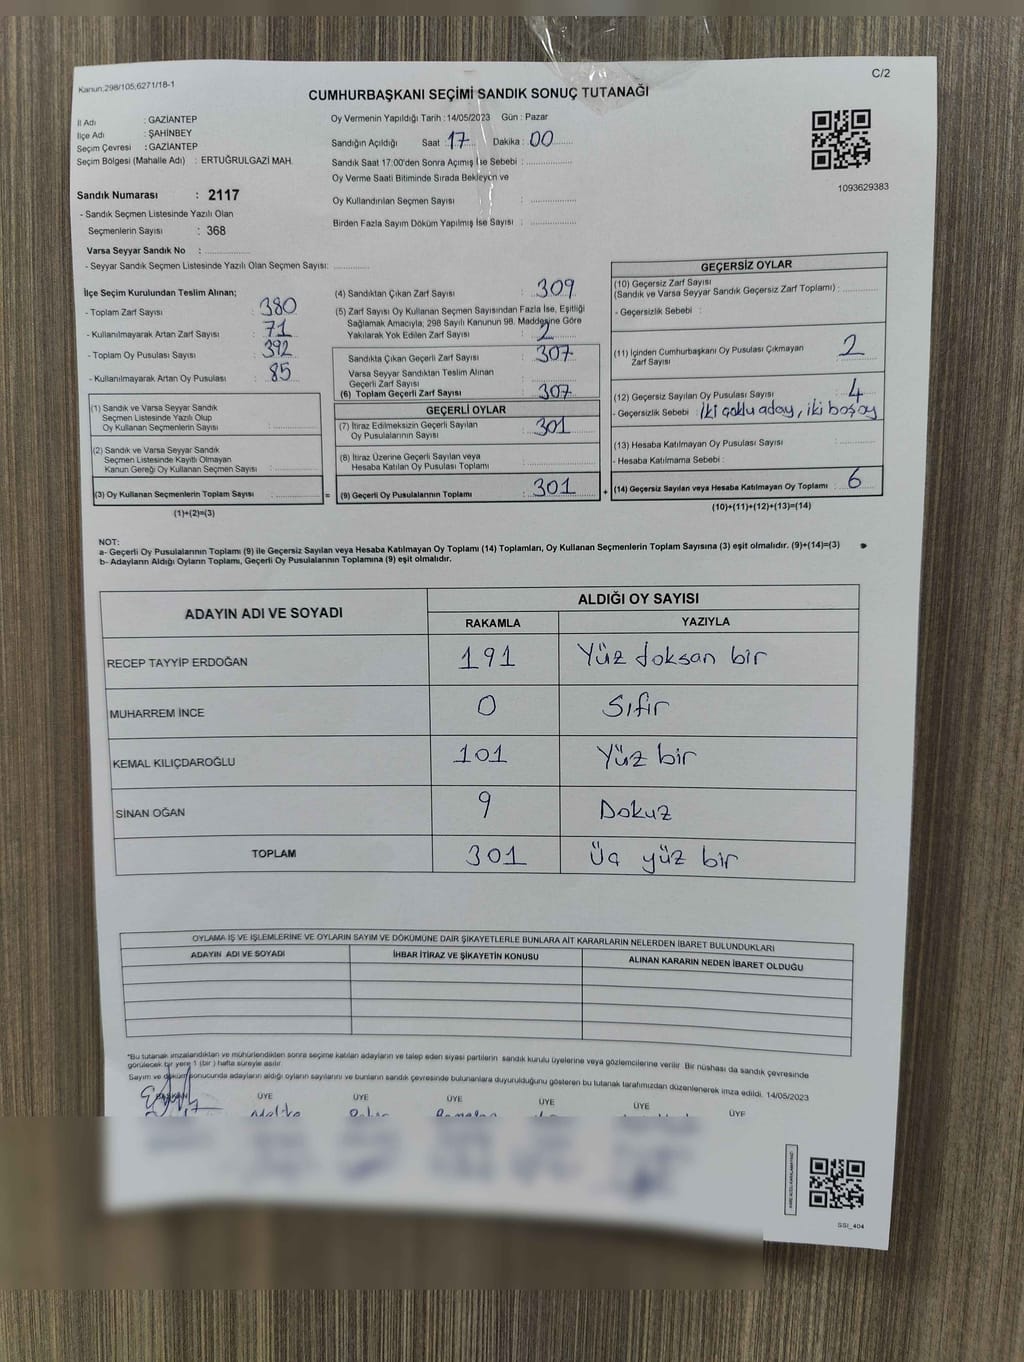 Kanun,298/105;6271/18-1
C/2
CUMHURBAŞKANI SEÇİMİ SANDIK SONUÇ TUTANAĞI
İl Adı : GAZİANTEP
İlçe Adı : ŞAHİNBEY
Seçim Çevresi : GAZİANTEP
Seçim Bölgesi (Mahalle Adı) : ERTUĞRULGAZİ MAH.
Sandık Numarası : 2117
- Sandık Seçmen Listesinde Yazılı Olan
Seçmenlerin Sayısı : 368
Varsa Seyyar Sandık No :
- Seyyar Sandık Seçmen Listesinde Yazılı Olan Seçmen Sayısı:
Oy Vermenin Yapıldığı Tarih : 14/05/2023 Gün : Pazar
Sandığın Açıldığı Saat : 17 Dakika : 00
Sandık Saat 17:00'den Sonra Açımış İse Sebebi :
Oy Verme Saati Bitiminde Sırada Bekleyen ve
Oy Kullandırılan Seçmen Sayısı :
Birden Fazla Sayım Döküm Yapılmış İse Sayısı :
1093629383
İlçe Seçim Kurulundan Teslim Alınan;
- Toplam Zarf Sayısı : 380
- Kullanılmayarak Artan Zarf Sayısı : 71
- Toplam Oy Pusulası Sayısı : 392
- Kullanılmayarak Artan Oy Pusulası : 85
(1) Sandık ve Varsa Seyyar Sandık
Seçmen Listesinde Yazılı Olup
Oy Kullanan Seçmenlerin Sayısı :
(2) Sandık ve Varsa Seyyar Sandık
Seçmen Listesinde Kayıtlı Olmayan
Kanun Gereği Oy Kullanan Seçmen Sayısı :
(3) Oy Kullanan Seçmenlerin Toplam Sayısı : =
(1)+(2)=(3)
(4) Sandıktan Çıkan Zarf Sayısı : 309
(5) Zarf Sayısı Oy Kullanan Seçmen Sayısından Fazla İse, Eşitliği
Sağlamak Amacıyla, 298 Sayılı Kanunun 98. Maddesine Göre
Yakılarak Yok Edilen Zarf Sayısı : 2
Sandıkta Çıkan Geçerli Zarf Sayısı : 307
Varsa Seyyar Sandıktan Teslim Alınan
Geçerli Zarf Sayısı :
(6) Toplam Geçerli Zarf Sayısı : 307
GEÇERLİ OYLAR
(7) İtiraz Edilmeksizin Geçerli Sayılan
Oy Pusulalarının Sayısı : 301
(8) İtiraz Üzerine Geçerli Sayılan veya
Hesaba Katılan Oy Pusulası Toplamı :
(9) Geçerli Oy Pusulalarının Toplamı : 301 +
GEÇERSİZ OYLAR
(10) Geçersiz Zarf Sayısı
(Sandık ve Varsa Seyyar Sandık Geçersiz Zarf Toplamı) :
- Geçersizlik Sebebi :
(11) İçinden Cumhurbaşkanı Oy Pusulası Çıkmayan
Zarf Sayısı : 2
(12) Geçersiz Sayılan Oy Pusulası Sayısı : 4
- Geçersizlik Sebebi : İki çoklu aday, iki boş oy
(13) Hesaba Katılmayan Oy Pusulası Sayısı :
- Hesaba Katılmama Sebebi :
(14) Geçersiz Sayılan veya Hesaba Katılmayan Oy Toplamı : 6
(10)+(11)+(12)+(13)=(14)
NOT:
a- Geçerli Oy Pusulalarının Toplamı (9) ile Geçersiz Sayılan veya Hesaba Katılmayan Oy Toplamı (14) Toplamları, Oy Kullanan Seçmenlerin Toplam Sayısına (3) eşit olmalıdır. (9)+(14)=(3)
b- Adayların Aldığı Oyların Toplamı, Geçerli Oy Pusulalarının Toplamına (9) eşit olmalıdır.
ADAYIN ADI VE SOYADI ALDIĞI OY SAYISI
RAKAMLA YAZIYLA
RECEP TAYYİP ERDOĞAN 191 Yüz doksan bir
MUHARREM İNCE 0 Sıfır
KEMAL KILIÇDAROĞLU 101 Yüz bir
SİNAN OĞAN 9 Dokuz
TOPLAM 301 Üç yüz bir
OYLAMA İŞ VE İŞLEMLERİNE VE OYLARIN SAYIM VE DÖKÜMÜNE DAİR ŞİKAYETLERLE BUNLARA AİT KARARLARIN NELERDEN İBARET BULUNDUKLARI
ADAYIN ADI VE SOYADI İHBAR İTİRAZ VE ŞİKAYETİN KONUSU ALINAN KARARIN NEDEN İBARET OLDUĞU
*Bu tutanak imzalandıktan ve mühürlendikten sonra seçime katılan adayların ve talep eden siyasi partilerin sandık kurulu üyelerine veya gözlemcilerine verilir. Bir nüshası da sandık çevresinde
görülecek bir yere 1 (bir) hafta süreyle asılır.
Sayım ve döküm sonucunda adayların aldığı oyların sayılarını ve bunların sandık çevresinde bulunanlara duyurulduğunu gösteren bu tutanak tarafımızdan düzenlenerek imza edildi. 14/05/2023
BAŞKAN ÜYE ÜYE ÜYE ÜYE ÜYE ÜYE
SSI_404